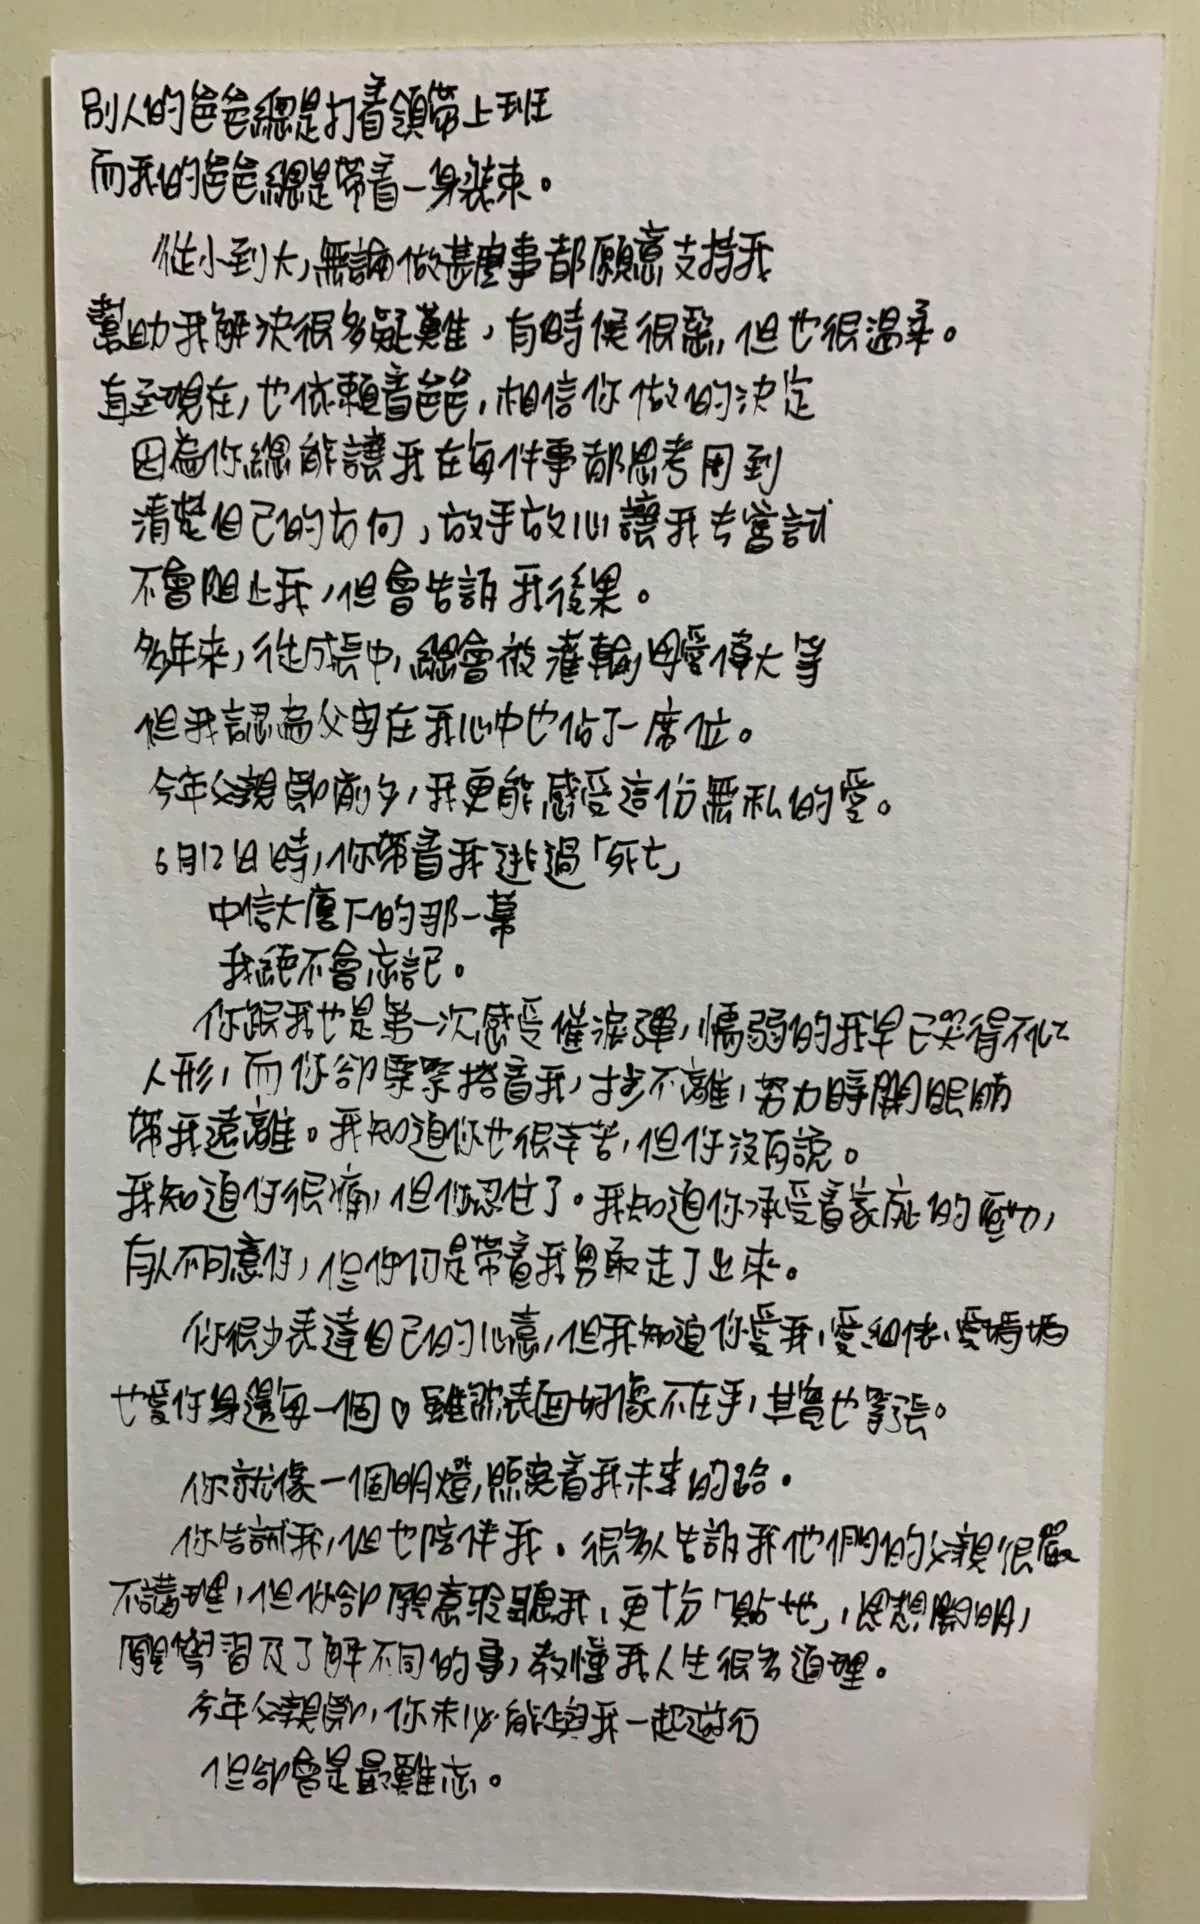 別人的爸爸總是打着領帶上班
而我的爸爸總是帶着一身裝束。
從小到大,無論做甚麼事都願意支持我
幫助我解決很多疑難,有時候很惡,但也很溫柔。
直至現在,也依賴着爸爸,相信你做的決定
因為你總能讓我在每件事都思考用到
清楚自己的方向,放手放心讓我去嘗試
不會阻止我,但會告訴我後果。
多年來,從成長中,總會被灌輸母愛偉大等
但我認為父母在我心中也佔了一席位。
今年父親節前夕,我更能感受這份無私的愛。
6月12日時,你帶着我逃過「死亡」
中信大廈下的那一幕
我絕不會忘記。
你跟我也是第一次感受催淚彈,懦弱的我早已哭得不似
人形,而你卻緊緊搭着我,寸步不離,努力睜開眼睛
帶我遠離。我知道你也很辛苦,但你沒有說。
我知道你很痛,但你忍住了。我知道你承受着家庭的壓力,
有人不同意你,但你仍是帶着我勇敢走了出來。
你很少表達自己的心意,但我知道你愛我,愛細佬、愛媽媽
也愛你身邊每一個♡雖然表面好像不在乎,其實也緊張。
你就像一個明燈,照亮着我未來的路。
你告誡我,但也陪伴我。很多人告訴我他們的父親很嚴
不講理,但你卻願意聆聽我,更十分「貼地」,思想開明,
願學習及了解不同的事,教懂我人生很多道理。
今年父親節,你未必能與我一起遊行
但卻會是最難忘。